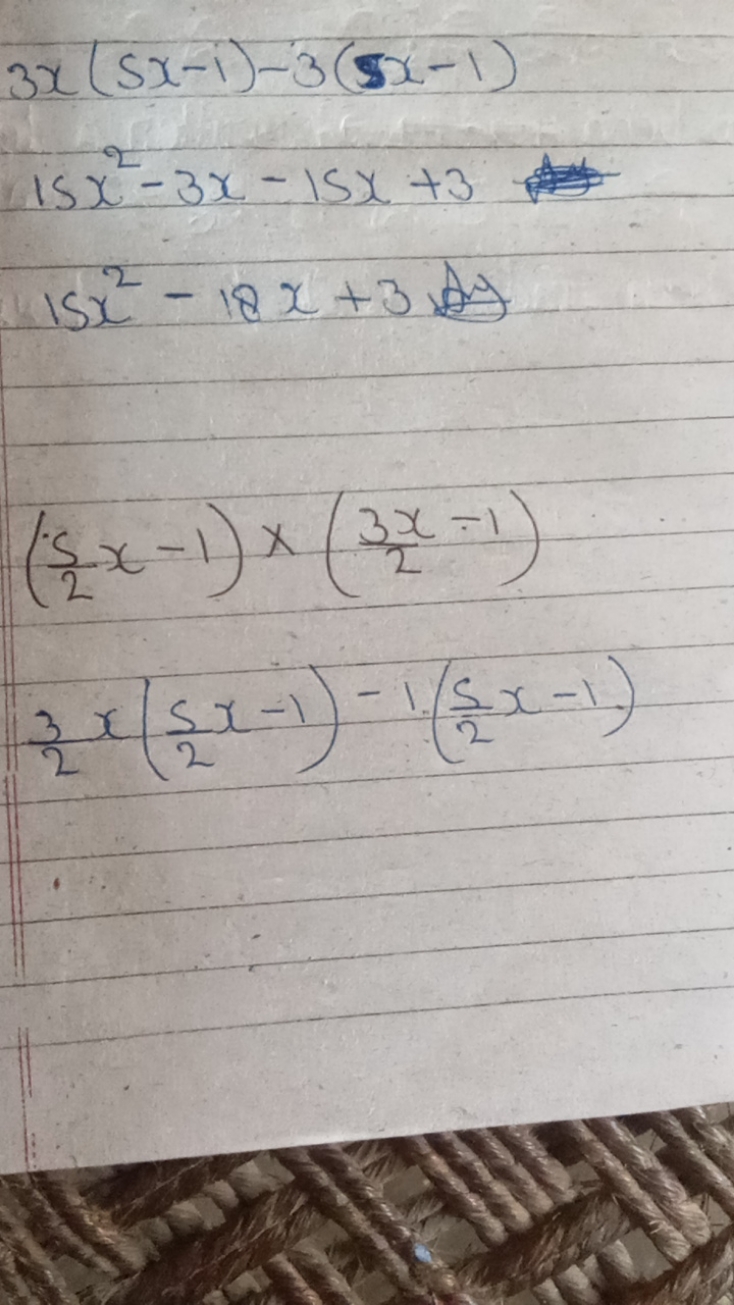 3x(5x-1)-3(5x-1)
15x²-3x-15x+3
15x²-18x+3 Ans
(5/2 x-1)×(3x/2-1)
3/2 x(5/2 x-1)-1(5/2 x-1)